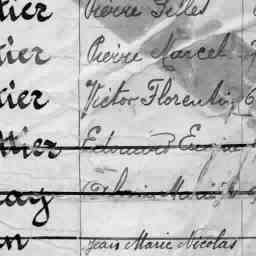 tier Pierre Gilles
tier Pierre Marcel
tier Victor Florentin 6
ttier Edouard Eugène
ay
n Jean Marie Nicolas